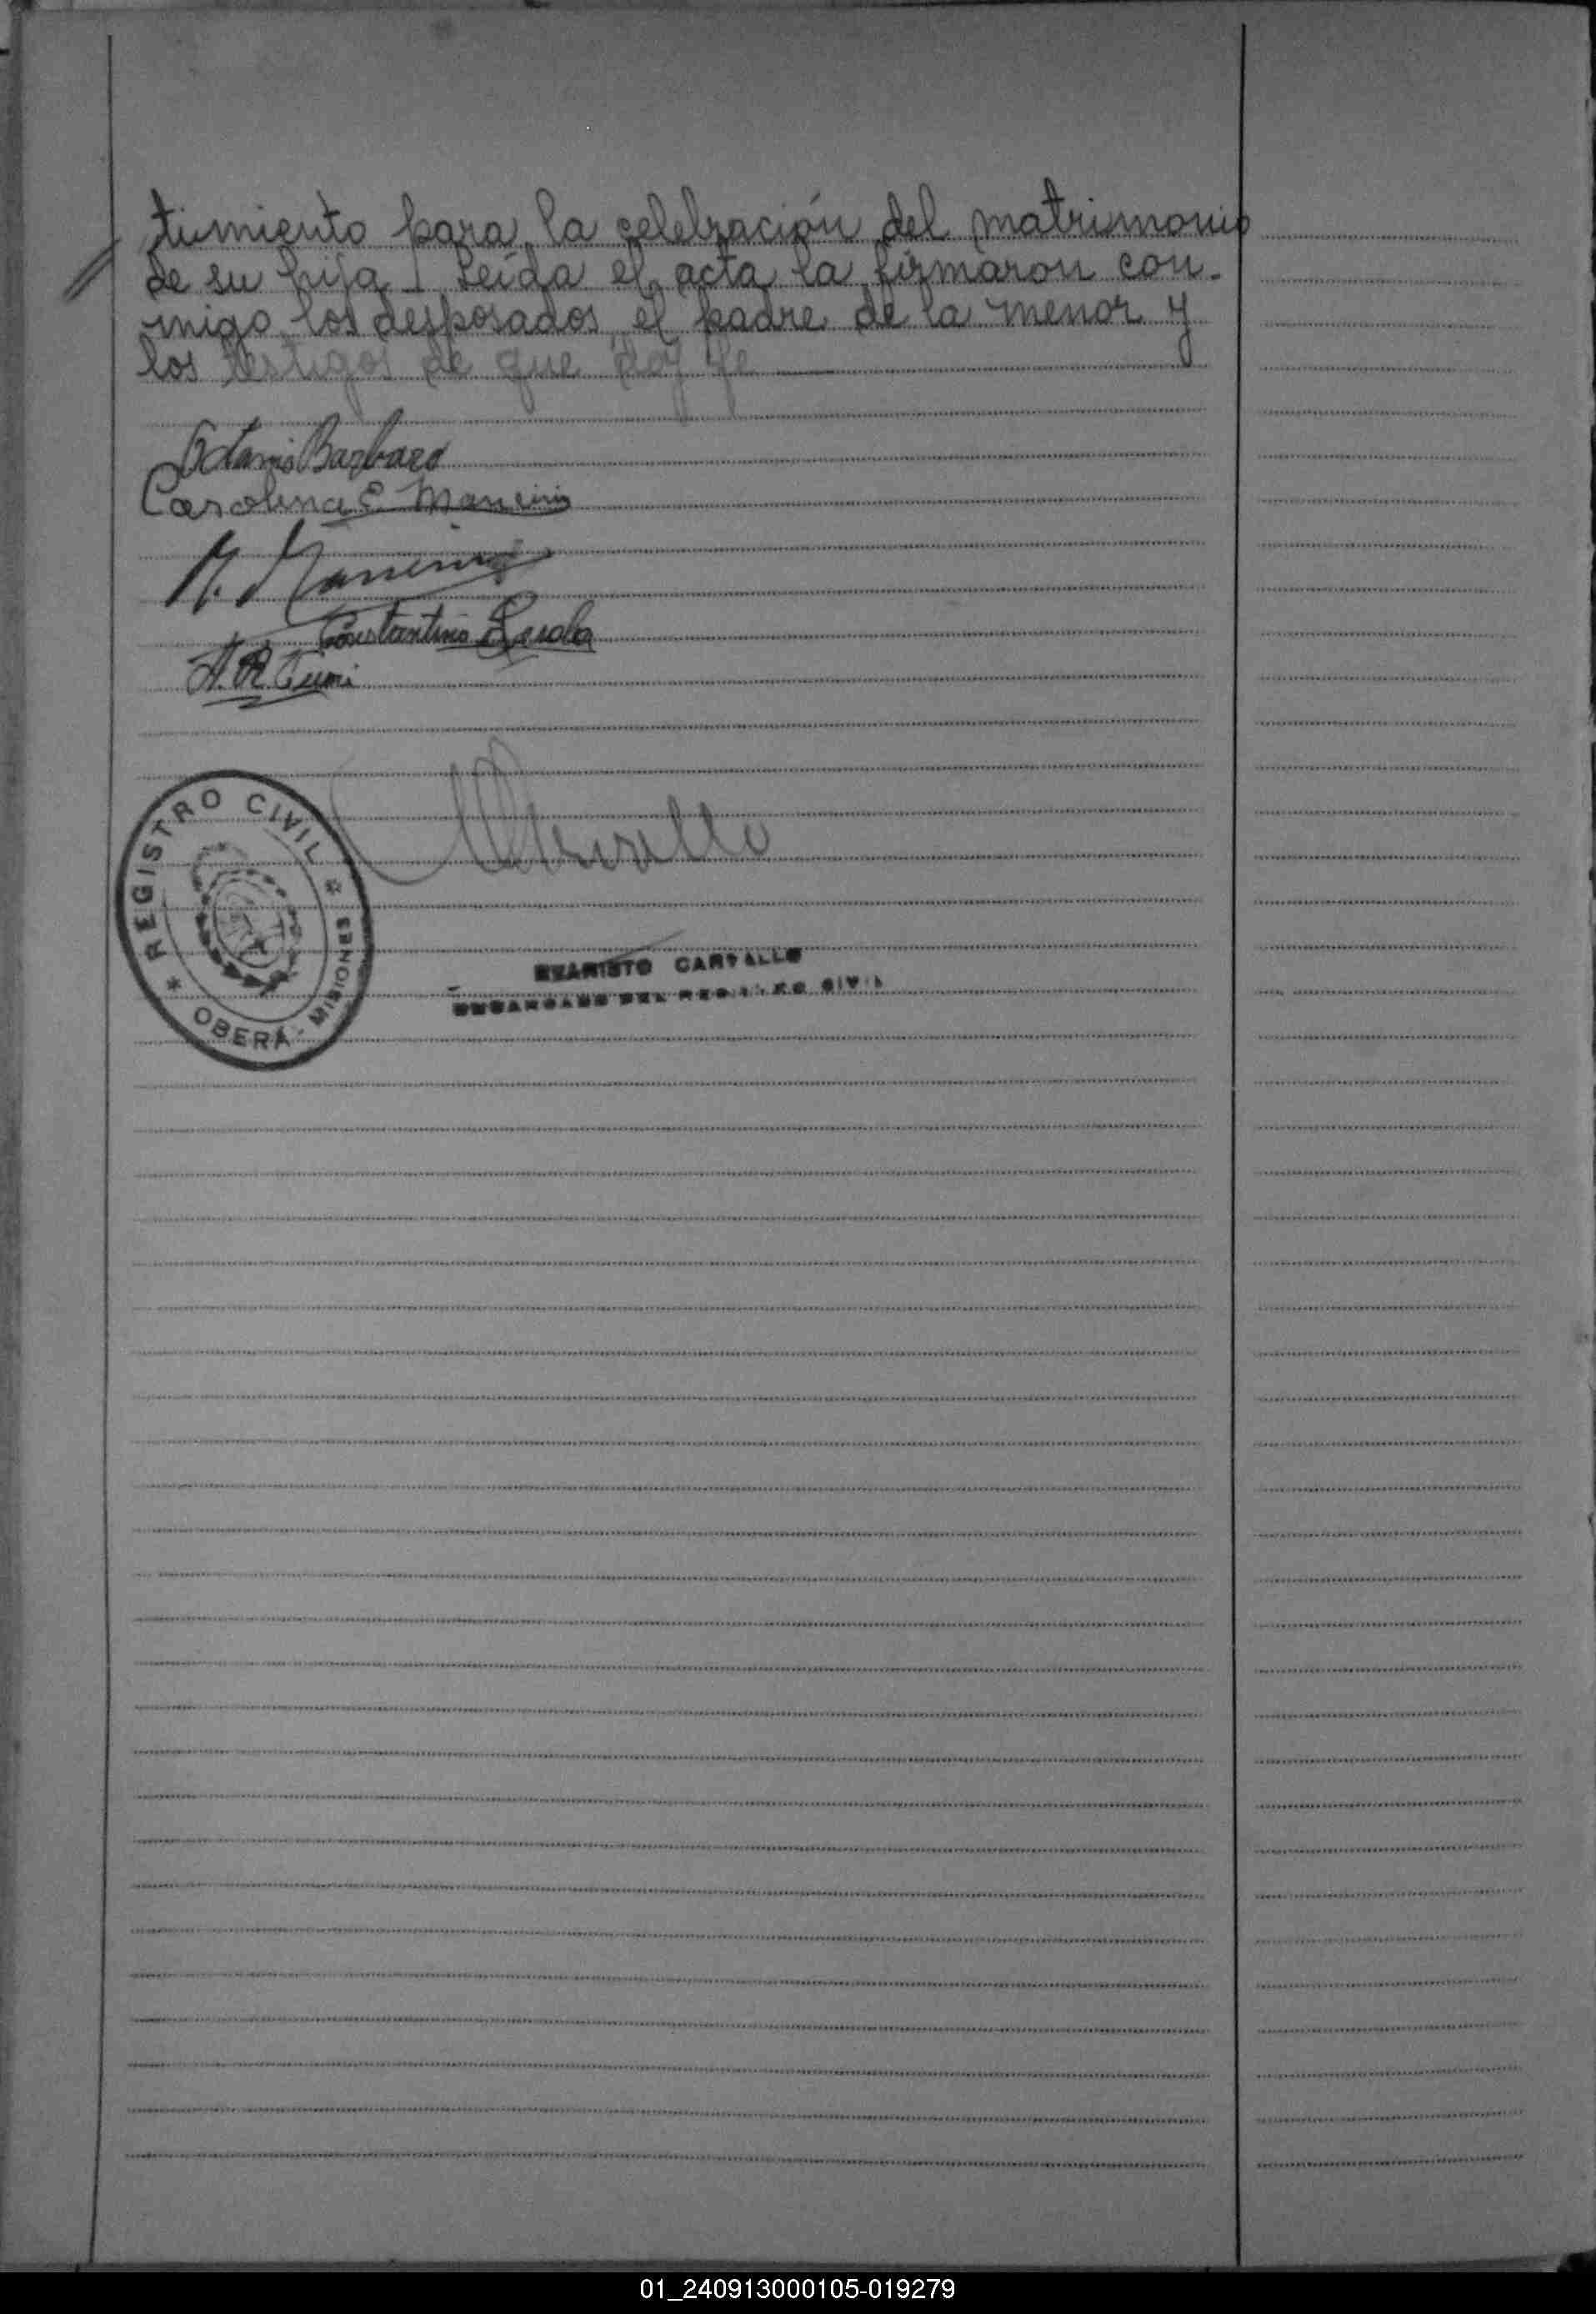 timiento para la celebración del matrimonio
de su hija. Leída el acta la firmaron con-
migo los desposados, el padre de la menor y
los testigos de que doy fe
Barbaro
Carolina E. Mancini
Constantino
H. R.
REGISTRO CIVIL
OBERÁ - MISIONES
EVARISTO CARVALLO
ENCARGADO DEL REGISTRO CIVIL
01_240913000105-019279